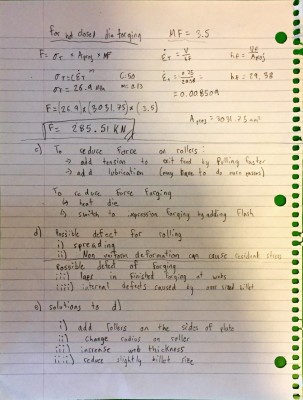 For hot closed die forging MF = 3.5
F = σr × Aproj × MF
ε̇r = V/
hf = Vf/Aproj
σr = Cε̇r^m C: 50
σr = 26.9 MPa m = 0.13
ε̇r = 0.25/29.38
hf = 29.38
= 0.008509
F = (26.9) × (3031.75) × (3.5)
Aproj = 3031.75 mm²
F = 285.51 KN
c) To reduce Force on rollers:
→ add tension to exit feed by pulling faster
→ add lubrication (may have to do more passes)
To reduce Force Forging
↳ heat die
↳ switch to impression forging by adding Flash
d) Possible defect for rolling
i) spreading
ii) Non uniform deformation can cause resident stress
Possible defect of forging
iii) laps in finished forging at webs
iiii) internal defects caused by over sized billet
e) solutions to d)
i) add rollers on the sides of plate
ii) change radius on roller
iii) increase web thickness
iiii) reduce slightly billet size